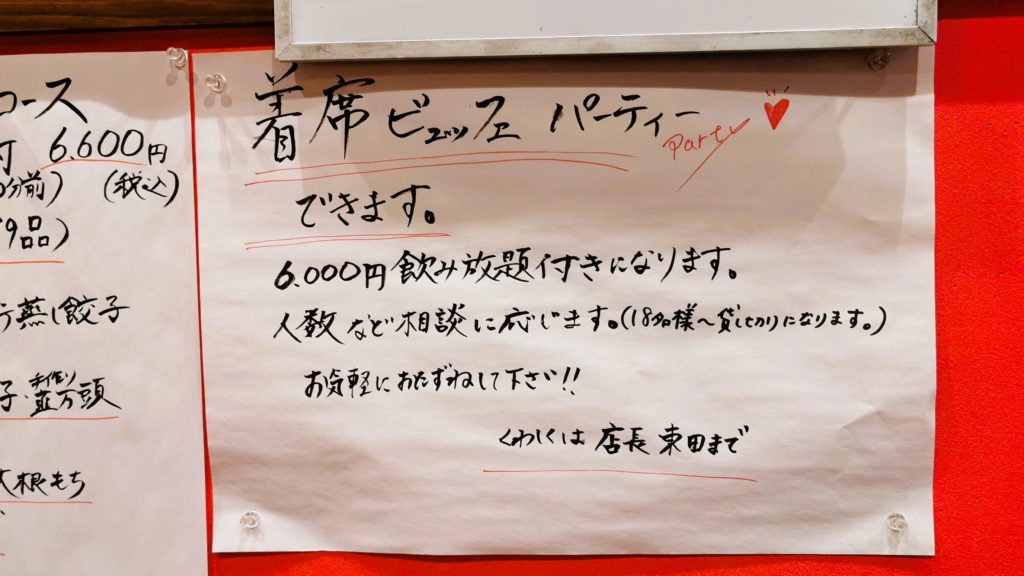 コース
6,600円
分前) (税込)
9品)
蒸し餃子
子・手作り
頭
大根もち
着席ビュッフェ パーティー
Party
できます。
6,000円飲み放題付きになります。
人数など相談に応じます。(18名様〜貸しきりになります。)
お気軽におたずねして下さい!!
くわしくは 店長 東田まで